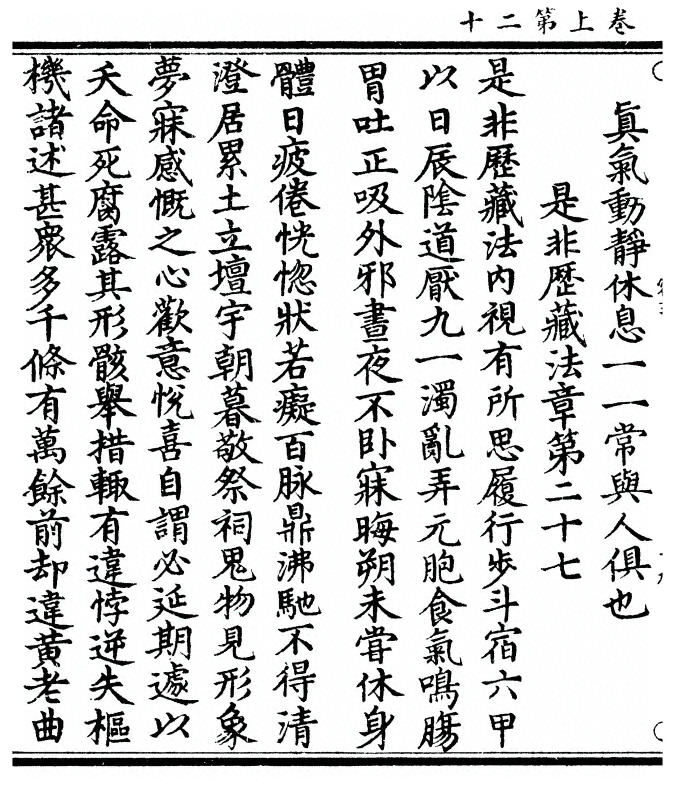 卷上第二十
眞氣動靜休息一一常與人俱也
是非歷藏法章第二十七
是非歷藏法内視有所思履行步斗宿六甲
以日辰陰道厭九一濁亂弄元胞食氣鳴膓
胃吐正吸外邪晝夜不卧寐晦朔未甞休身
體日疲倦恍惚狀若癡百脉鼎沸馳不得清
澄居累土立壇宇朝暮敬祭祠鬼物見形象
夢寐感慨之心歡意悅喜自謂必延期遽以
夭命死腐露其形骸舉措輙有違悖逆失樞
機諸述甚衆多千條有萬餘前却違黃老曲